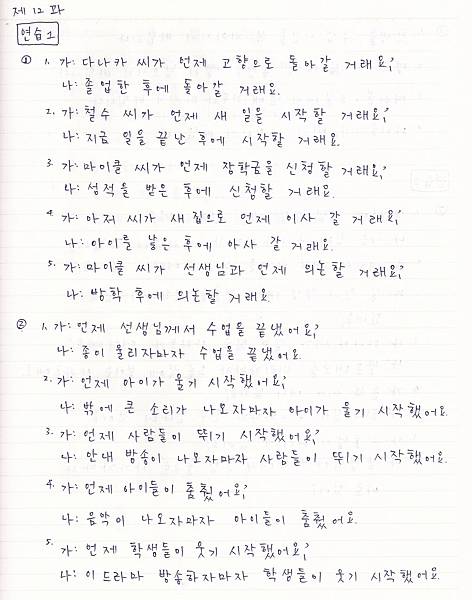 제 12 과
연습 1
① 1. 가: 다나카 씨가 언제 고향으로 돌아갈 거래요?
나: 졸업한 후에 돌아갈 거래요.
2. 가: 철수 씨가 언제 새 일을 시작할 거래요?
나: 지금 일을 끝난 후에 시작할 거래요.
3. 가: 마이클 씨가 언제 장학금을 신청할 거래요?
나: 성적을 받은 후에 신청할 거래요.
4. 가: 아저 씨가 새 집으로 언제 이사 갈 거래요?
나: 아이를 낳은 후에 이사 갈 거래요.
5. 가: 마이클 씨가 선생님과 언제 의논할 거래요?
나: 방학 후에 의논할 거래요.
② 1. 가: 언제 선생님께서 수업을 끝냈어요?
나: 종이 울리자마자 수업을 끝냈어요.
2. 가: 언제 아이가 울기 시작했어요?
나: 밖에 큰 소리가 나오자마자 아이가 울기 시작했어요.
3. 가: 언제 사람들이 뛰기 시작했어요?
나: 안내 방송이 나오자마자 사람들이 뛰기 시작했어요.
4. 가: 언제 아이들이 춤췄어요?
나: 음악이 나오자마자 아이들이 춤췄어요.
5. 가: 언제 학생들이 웃기 시작했어요?
나: 이 드라마 방송하자마자 학생들이 웃기 시작했어요.